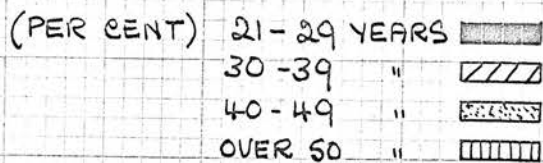 (PER CENT) 21-29 YEARS
30-39 "
40-49 "
OVER 50 "